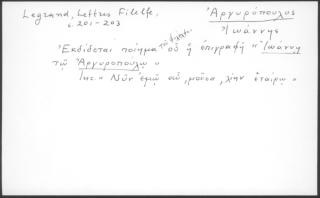 Legrand, Lettres Filelfe,
σ. 201-203
Ἀργυρόπουλος
Ἰωάννης
Ἐκδίδεται ποίημα τοῦ Φιλέλφ. οὗ ἡ ἐπιγραφὴ "Ἰωάννῃ
τῷ Ἀργυροπούλῳ"
Ἄρχ. "Νῦν ἐμῷ